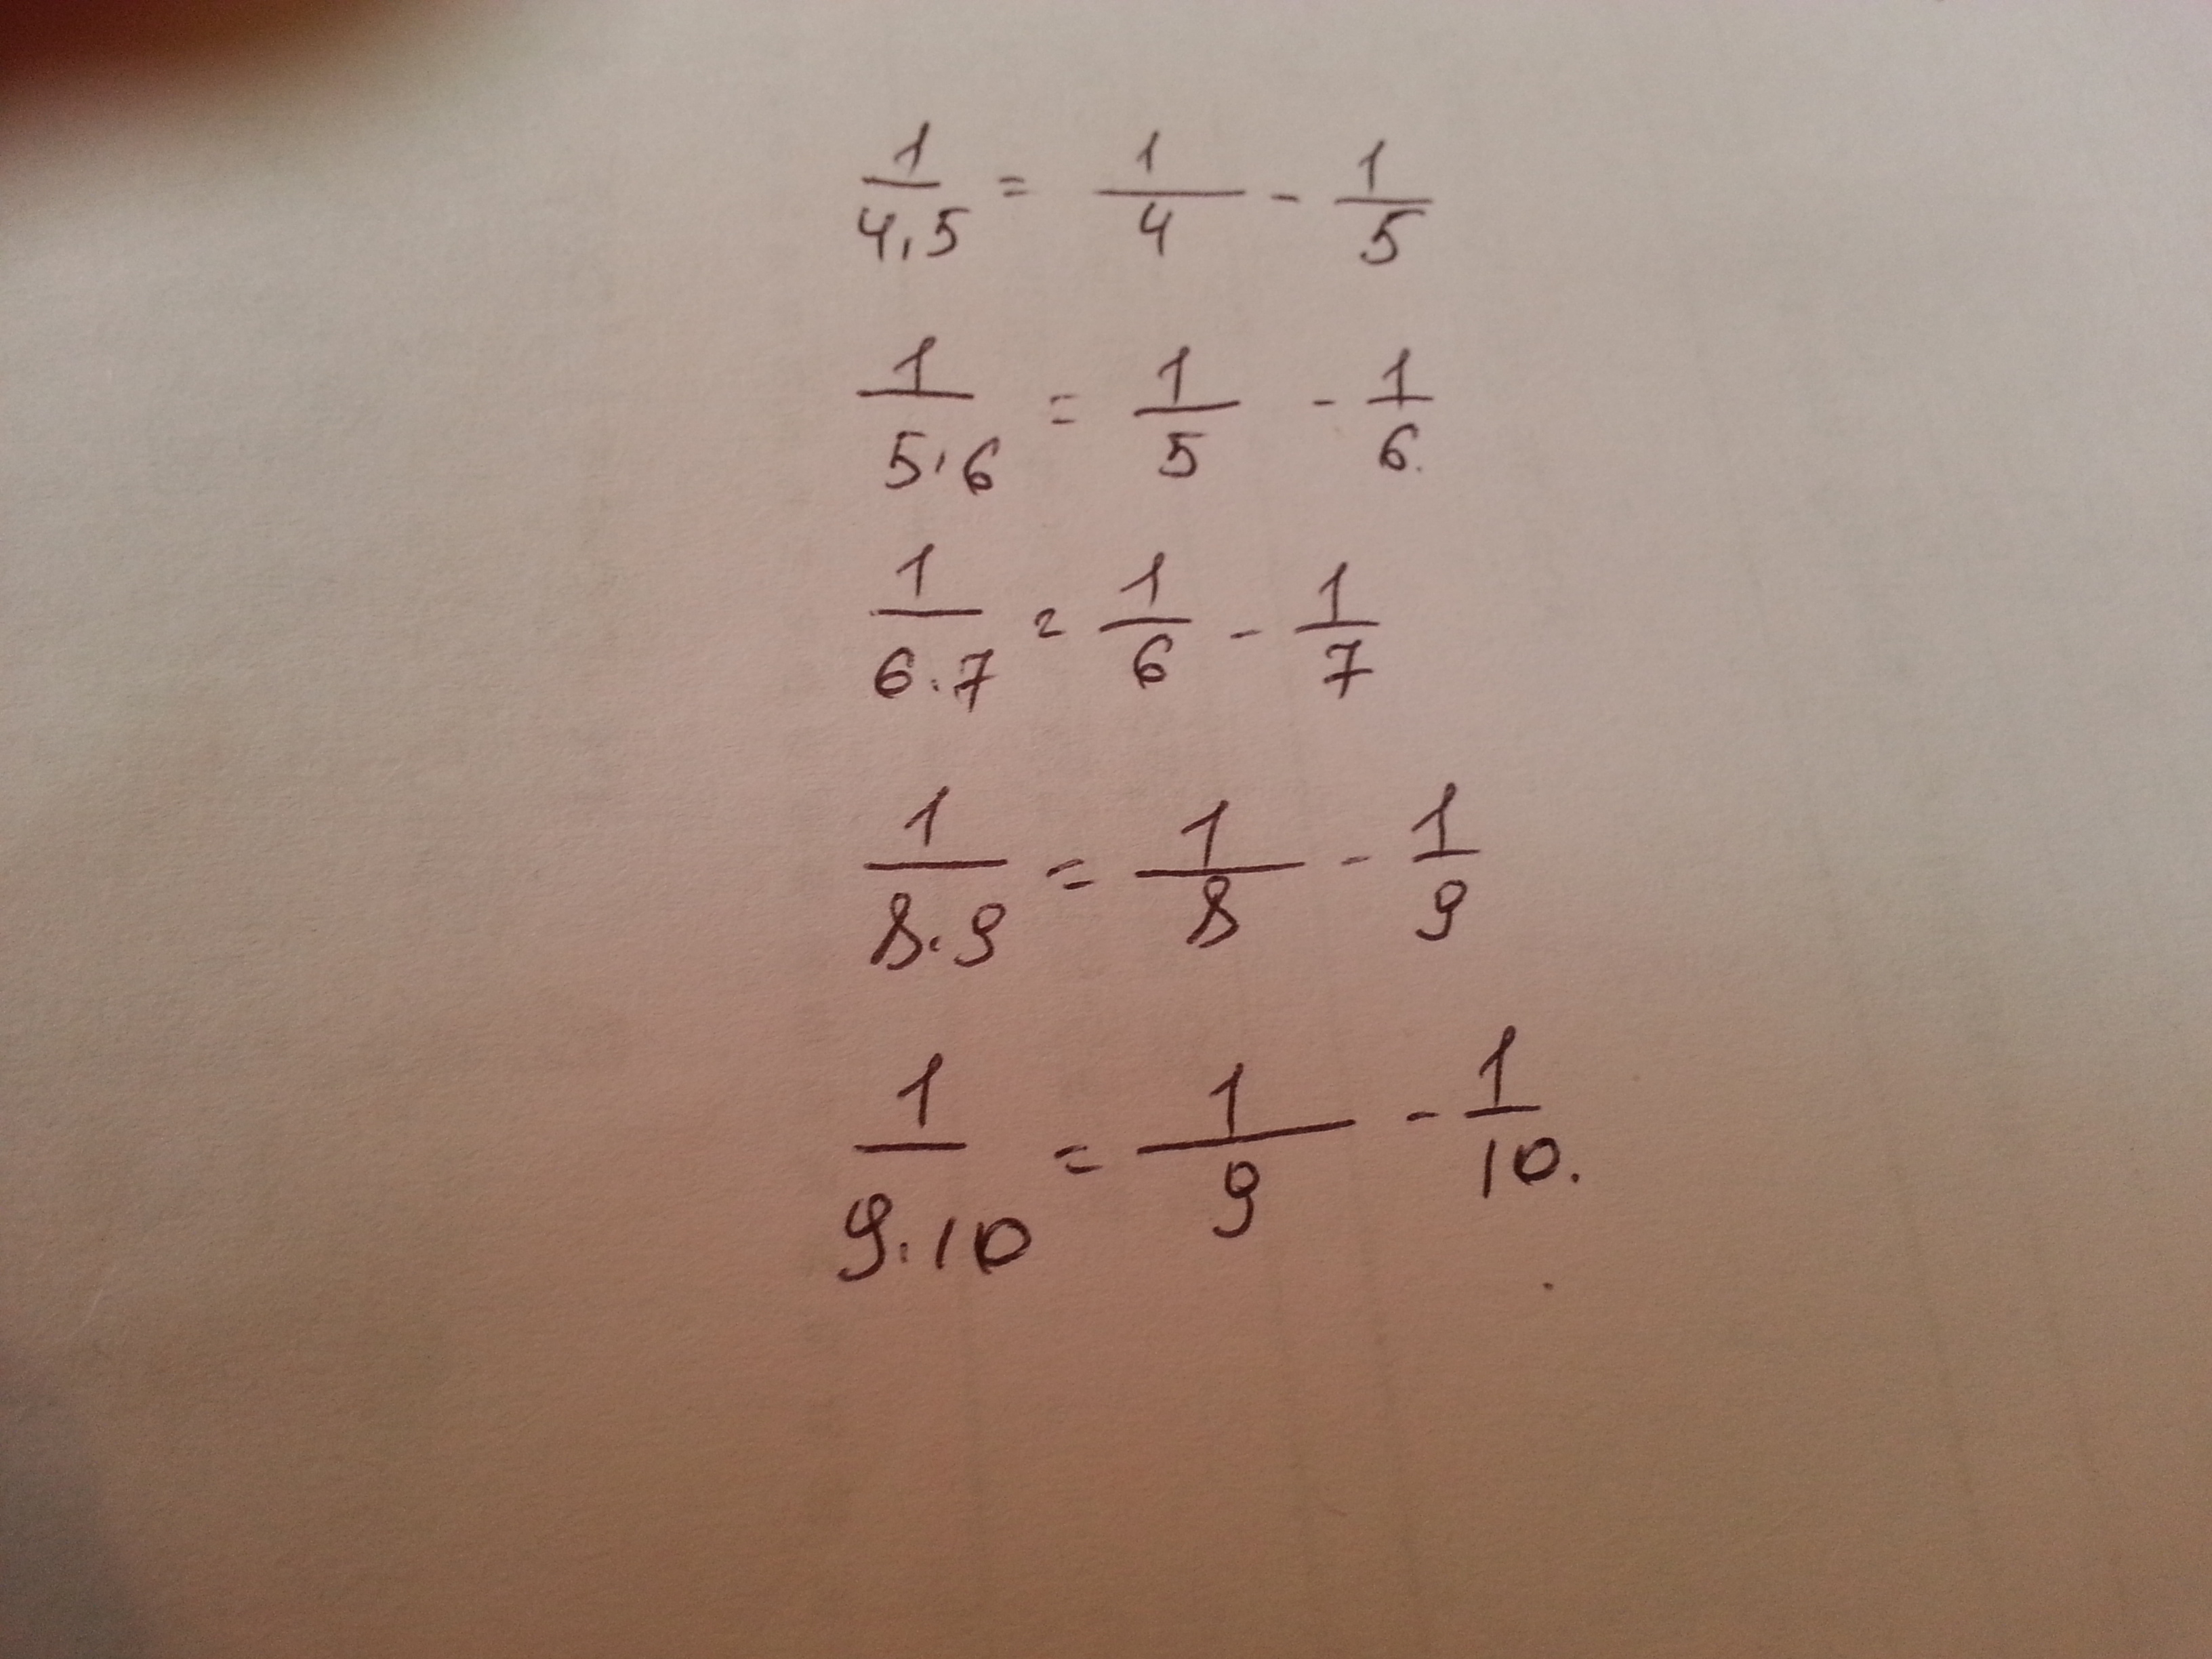 1/4.5 = 1/4 - 1/5
1/5.6 = 1/5 - 1/6.
1/6.7 = 1/6 - 1/7
1/8.9 = 1/8 - 1/9
1/9.10 = 1/9 - 1/10.